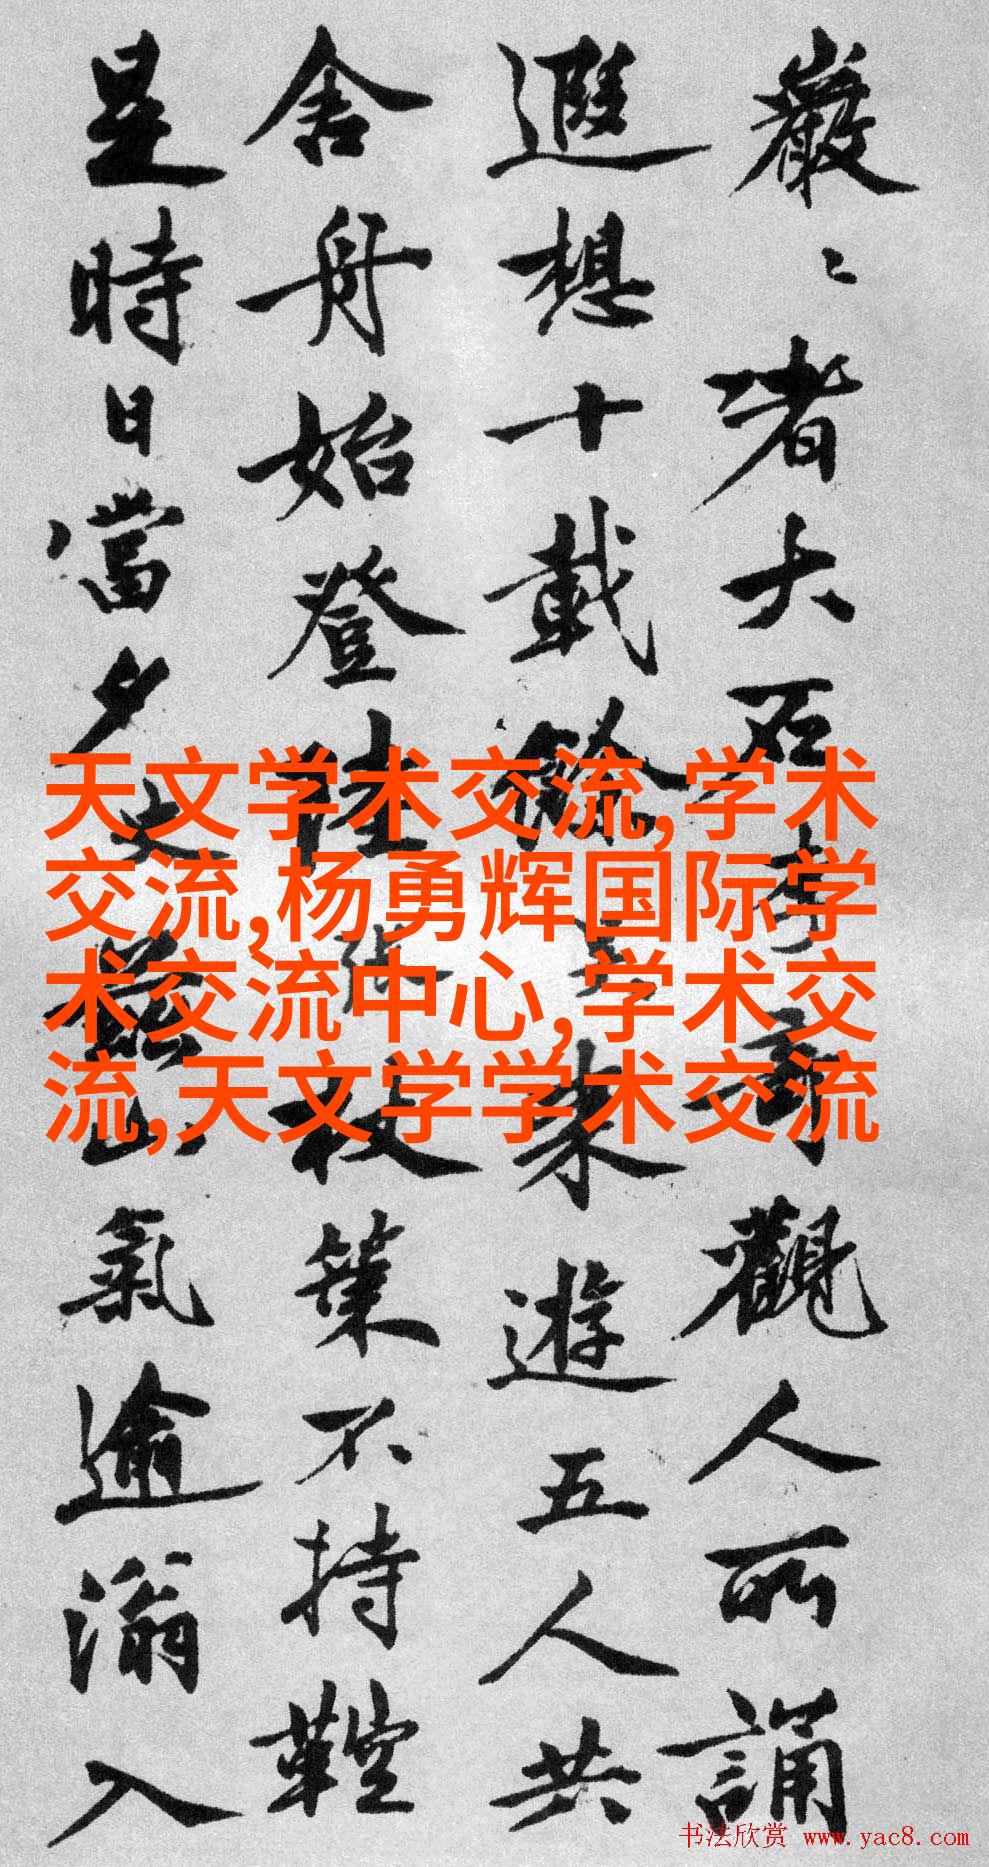 巖〻者大石奇壽觀人所誦
遐想十載餘今來遊五人共
舍舟始登陸杖策不持鞚
是時日當夕山氣逾滃入
天文学术交流,学术
交流,杨勇辉国际学
术交流中心,学术交
流,天文学学术交流
书法欣赏 www.yac8.com